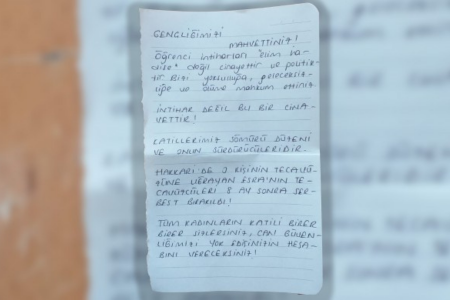 GENÇLİĞİMİZİ
MAHVETTİNİZ!
Öğrenci intiharları "elim ha-
dise" değil cinayettir ve politik-
tir. Bizi yoksulluğa, geleceksiz-
liğe ve ölüme mahkum ettiniz
İNTİHAR DEĞİL BU BİR CİNA-
YETTİR!
KATİLLERİMİZ SÖMÜRÜ DÜZENİ
VE ONUN SÜRDÜRÜCÜLERİDİR.
HAKKARİ DE 3 KİŞİNİN TECAVÜ-
ZÜNE UĞRAYAN ESRA'NIN TE-
CAVÜZCÜLERİ 8 AY SONRA SER-
BEST BIRAKILDI!
TÜM KADINLARIN KATİLİ BİRER
BİRER SİZLERSİNİZ, CAN GÜVEN-
LİĞİMİZİ YOK EDİŞİNİZİN HESA-
BINI VERECEKSİNİZ!